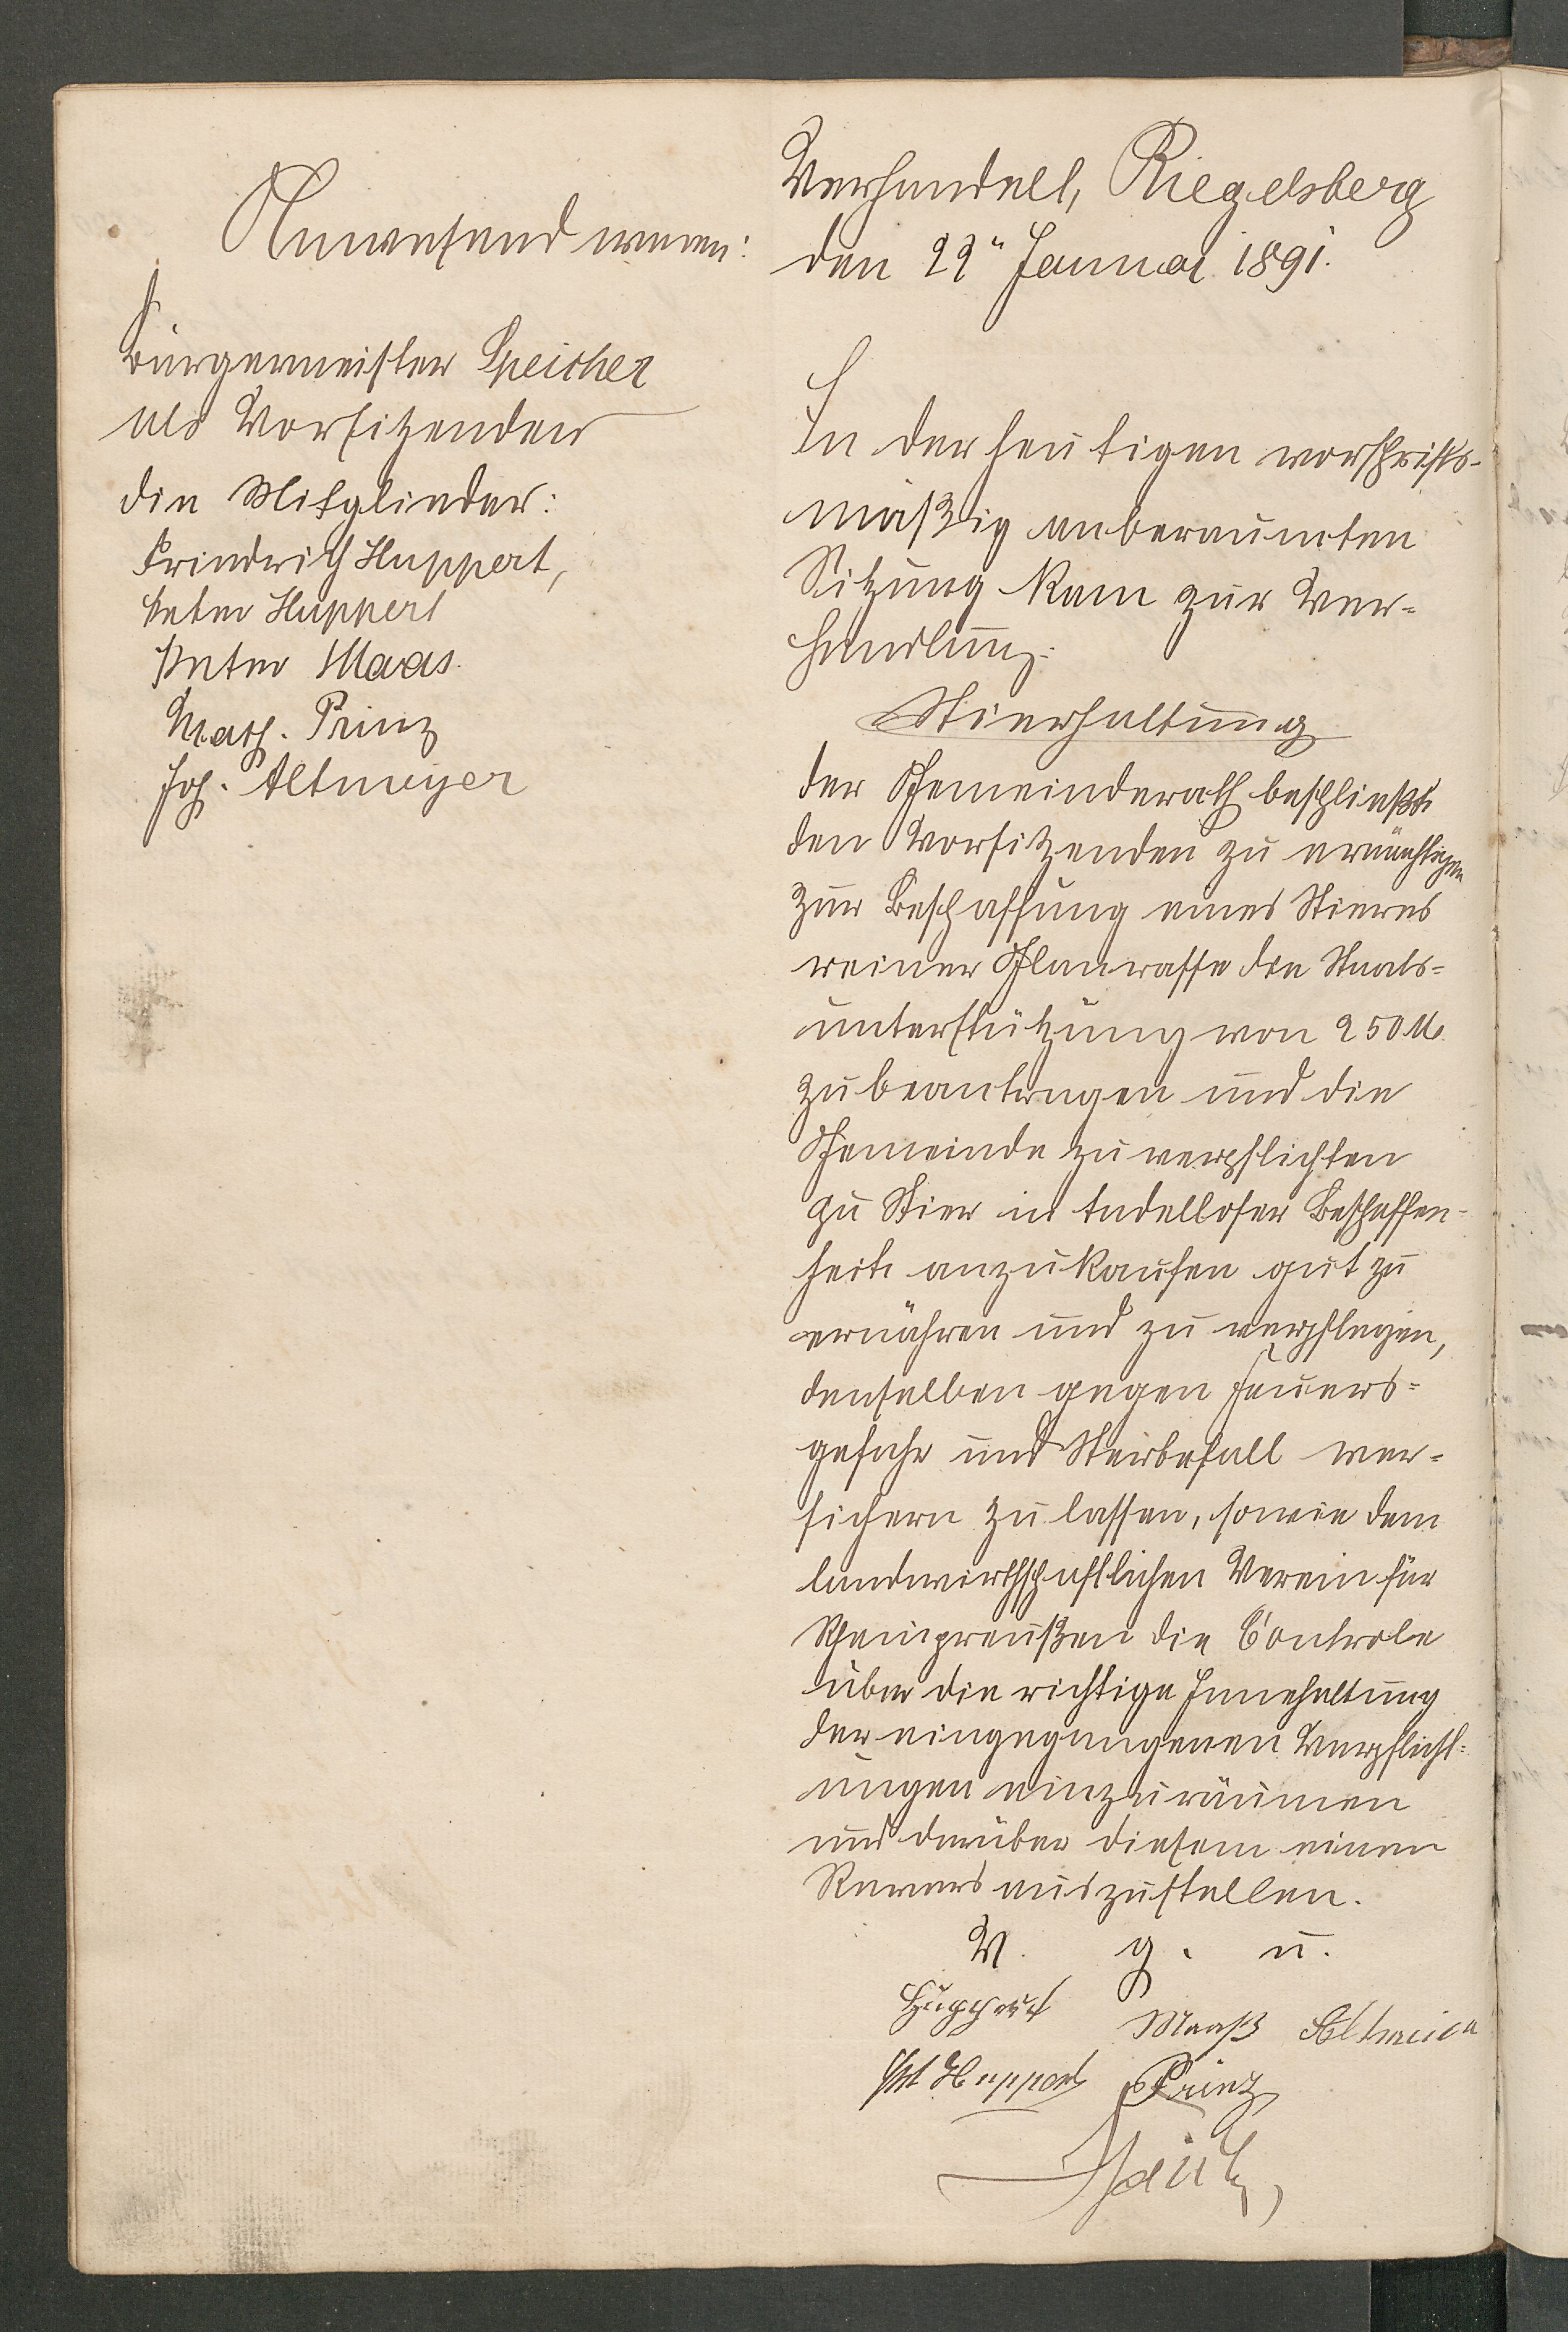 Anwesend waren:
Bürgermeister Speicher
als Vorsitzender
die Mitglieder:
Friedrich Huppert,
Peter Huppert
Peter Maas
Math. Prinz
Joh. Altmeyer
Verhandelt, Riegelsberg
den 22ⁿ Januar 1891.
In der heutigen vorschrifts-
mäßig anberaumten
Sitzung kam zur Ver-
handlung:
Stierhaltung
der Gemeinderath beschließt
den Vorsitzenden zu ermächtigen
zur Beschaffung eines Stieres
reiner Glanrasse die Staats-
unterstützung von 250 M.
zu beantragen und die
Gemeinde zu verpflichten
zu Stier in tadelloser Beschaffen-
heit anzukaufen gut zu
ernähren und zu verpflegen,
denselben gegen Feuers-
gefahr und Sterbefall ver-
sichern zu lassen, sowie dem
landwirthschaftlichen Verein für
Rheinpreußen die Controle
über die richtige Innehaltung
der eingegangenen Verpflicht-
ungen einzuräumen
und darüber diesem einen
Revers auszustellen.
V. g. u.
Huppert Maaß Altmeier
Pet Huppert Prinz